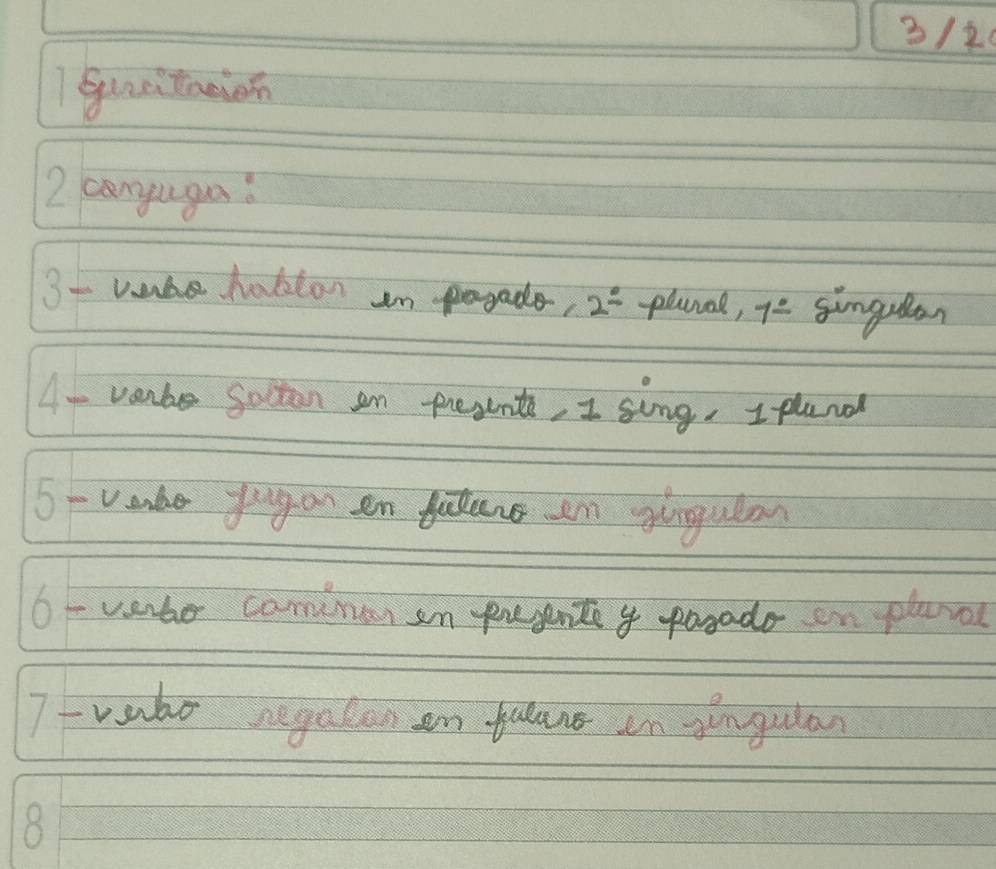 3/2
1 Ejercitación
2 conjuga:
3 - verbo hablar en pasado, 2º plural, 1º singular
4 - verbo saltar en presente, 1 sing, 1 plural
5 - verbo jugar en futuro en singular
6 - verbo caminar en presente y pasado en plural
7 - verbo regalar en futuro en singular
8